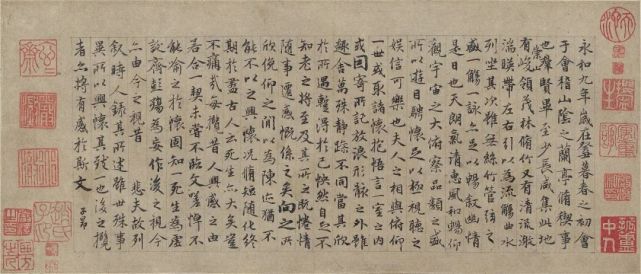 永和九年歲在癸丑暮春之初會
于會稽山陰之蘭亭脩稧事
也群賢畢至少長咸集此地
有崇山峻領茂林脩竹又有清流激
湍暎帶左右引以為流觴曲水
列坐其次雖無絲竹管弦之
盛一觴一詠亦足以暢敘幽情
是日也天朗氣清惠風和暢仰
觀宇宙之大俯察品類之盛
所以遊目騁懷足以極視聽之
娛信可樂也夫人之相與俯仰
一世或取諸懷抱悟言一室之內
或因寄所託放浪形骸之外雖
趣舍萬殊靜躁不同當其欣
於所遇暫得於己怏然自足不
知老之將至及其所之既惓情
隨事遷感慨係之矣向之所
欣俛仰之間以為陳迹猶不
能不以之興懷況脩短隨化終
期於盡古人云死生亦大矣豈
不痛哉每攬昔人興感之由
若合一契未嘗不臨文嗟悼不
能喻之於懷固知一死生為虛
誕齊彭殤為妄作後之視今
亦由今之視昔 悲夫故列
敘時人錄其所述雖世殊事
異所以興懷其致一也後之攬
者亦將有感於斯文
子昂